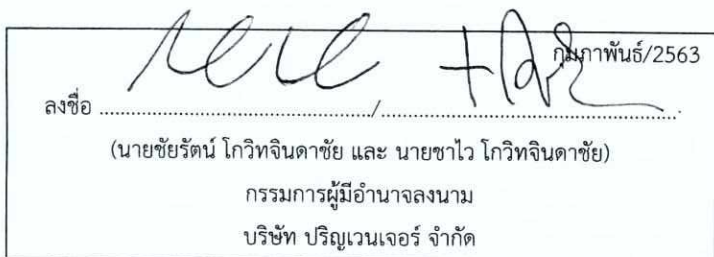 กุมภาพันธ์/2563
ลงชื่อ ............................................................/............................................................
(นายชัยรัตน์ โกวิทจินดาชัย และ นายชาไว โกวิทจินดาชัย)
กรรมการผู้มีอำนาจลงนาม
บริษัท ปริญเวนเจอร์ จำกัด